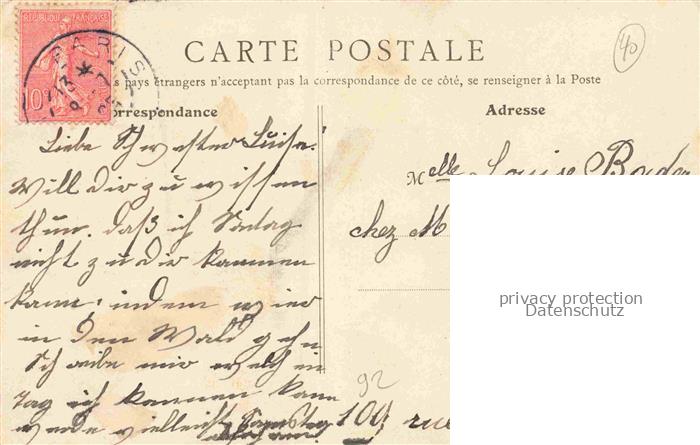 REPUBLIQUE FRANÇAISE
10
PARIS
CARTE POSTALE
40
pays étrangers n'acceptent pas la correspondance de ce côté, se renseigner à la Poste
orrespondance
Adresse
Liebe Schwester Luise!
Will dir zu wissen
thun. daß ich Sontag
nicht zu dir kommen
kann, indem wier
in den Wald gehn
Schreibe mir welchen
Tag ich kommen kann
werde vielleicht Samstag
Melle Louise Bader
chez M
privacy protection
Datenschutz
92
109 rue